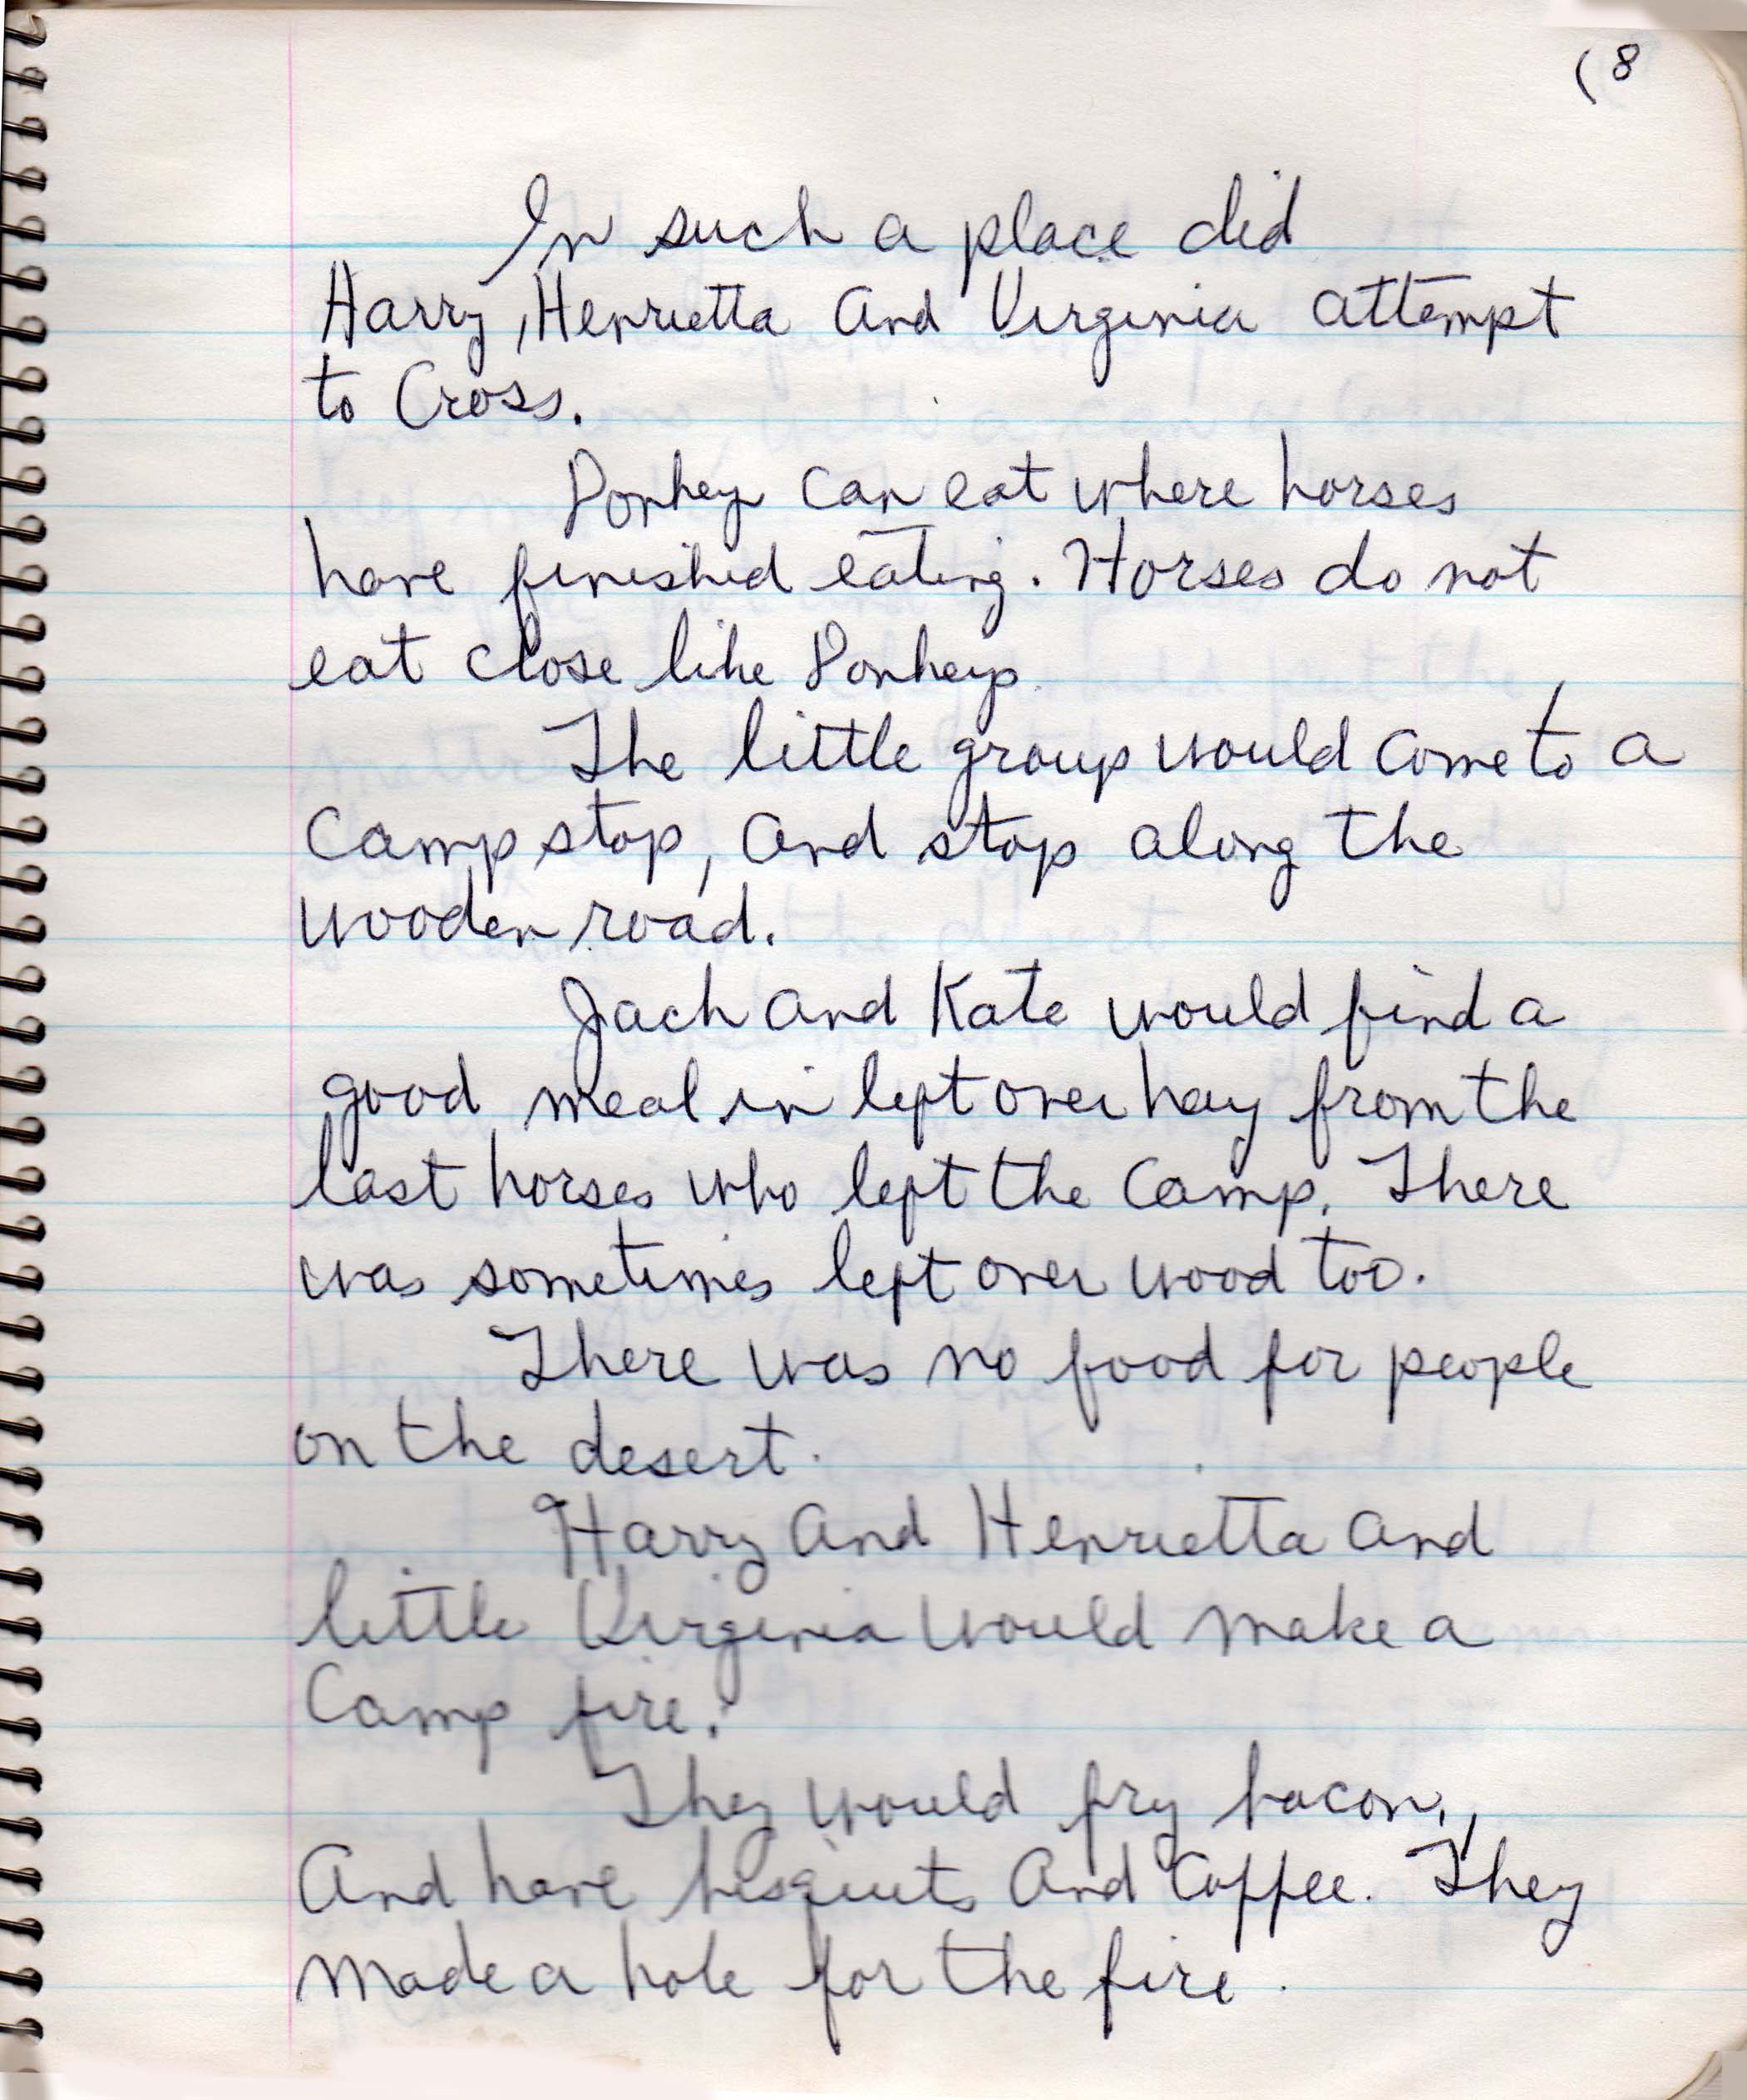 (8
In such a place did
Harry, Henrietta and Virginia attempt
to Cross.
Donkeys can eat where horses
have finished eating. Horses do not
eat close like Donkeys.
The little group would come to a
Camp stop, and stop along the
wooden road.
Jack and Kate would find a
good meal in left over hay from the
last horses who left the Camp. There
was sometimes left over wood too.
There was no food for people
on the desert.
Harry and Henrietta and
little Virginia would make a
Camp fire.
They would fry bacon,
And have bisquits and Coffee. They
made a hole for the fire.